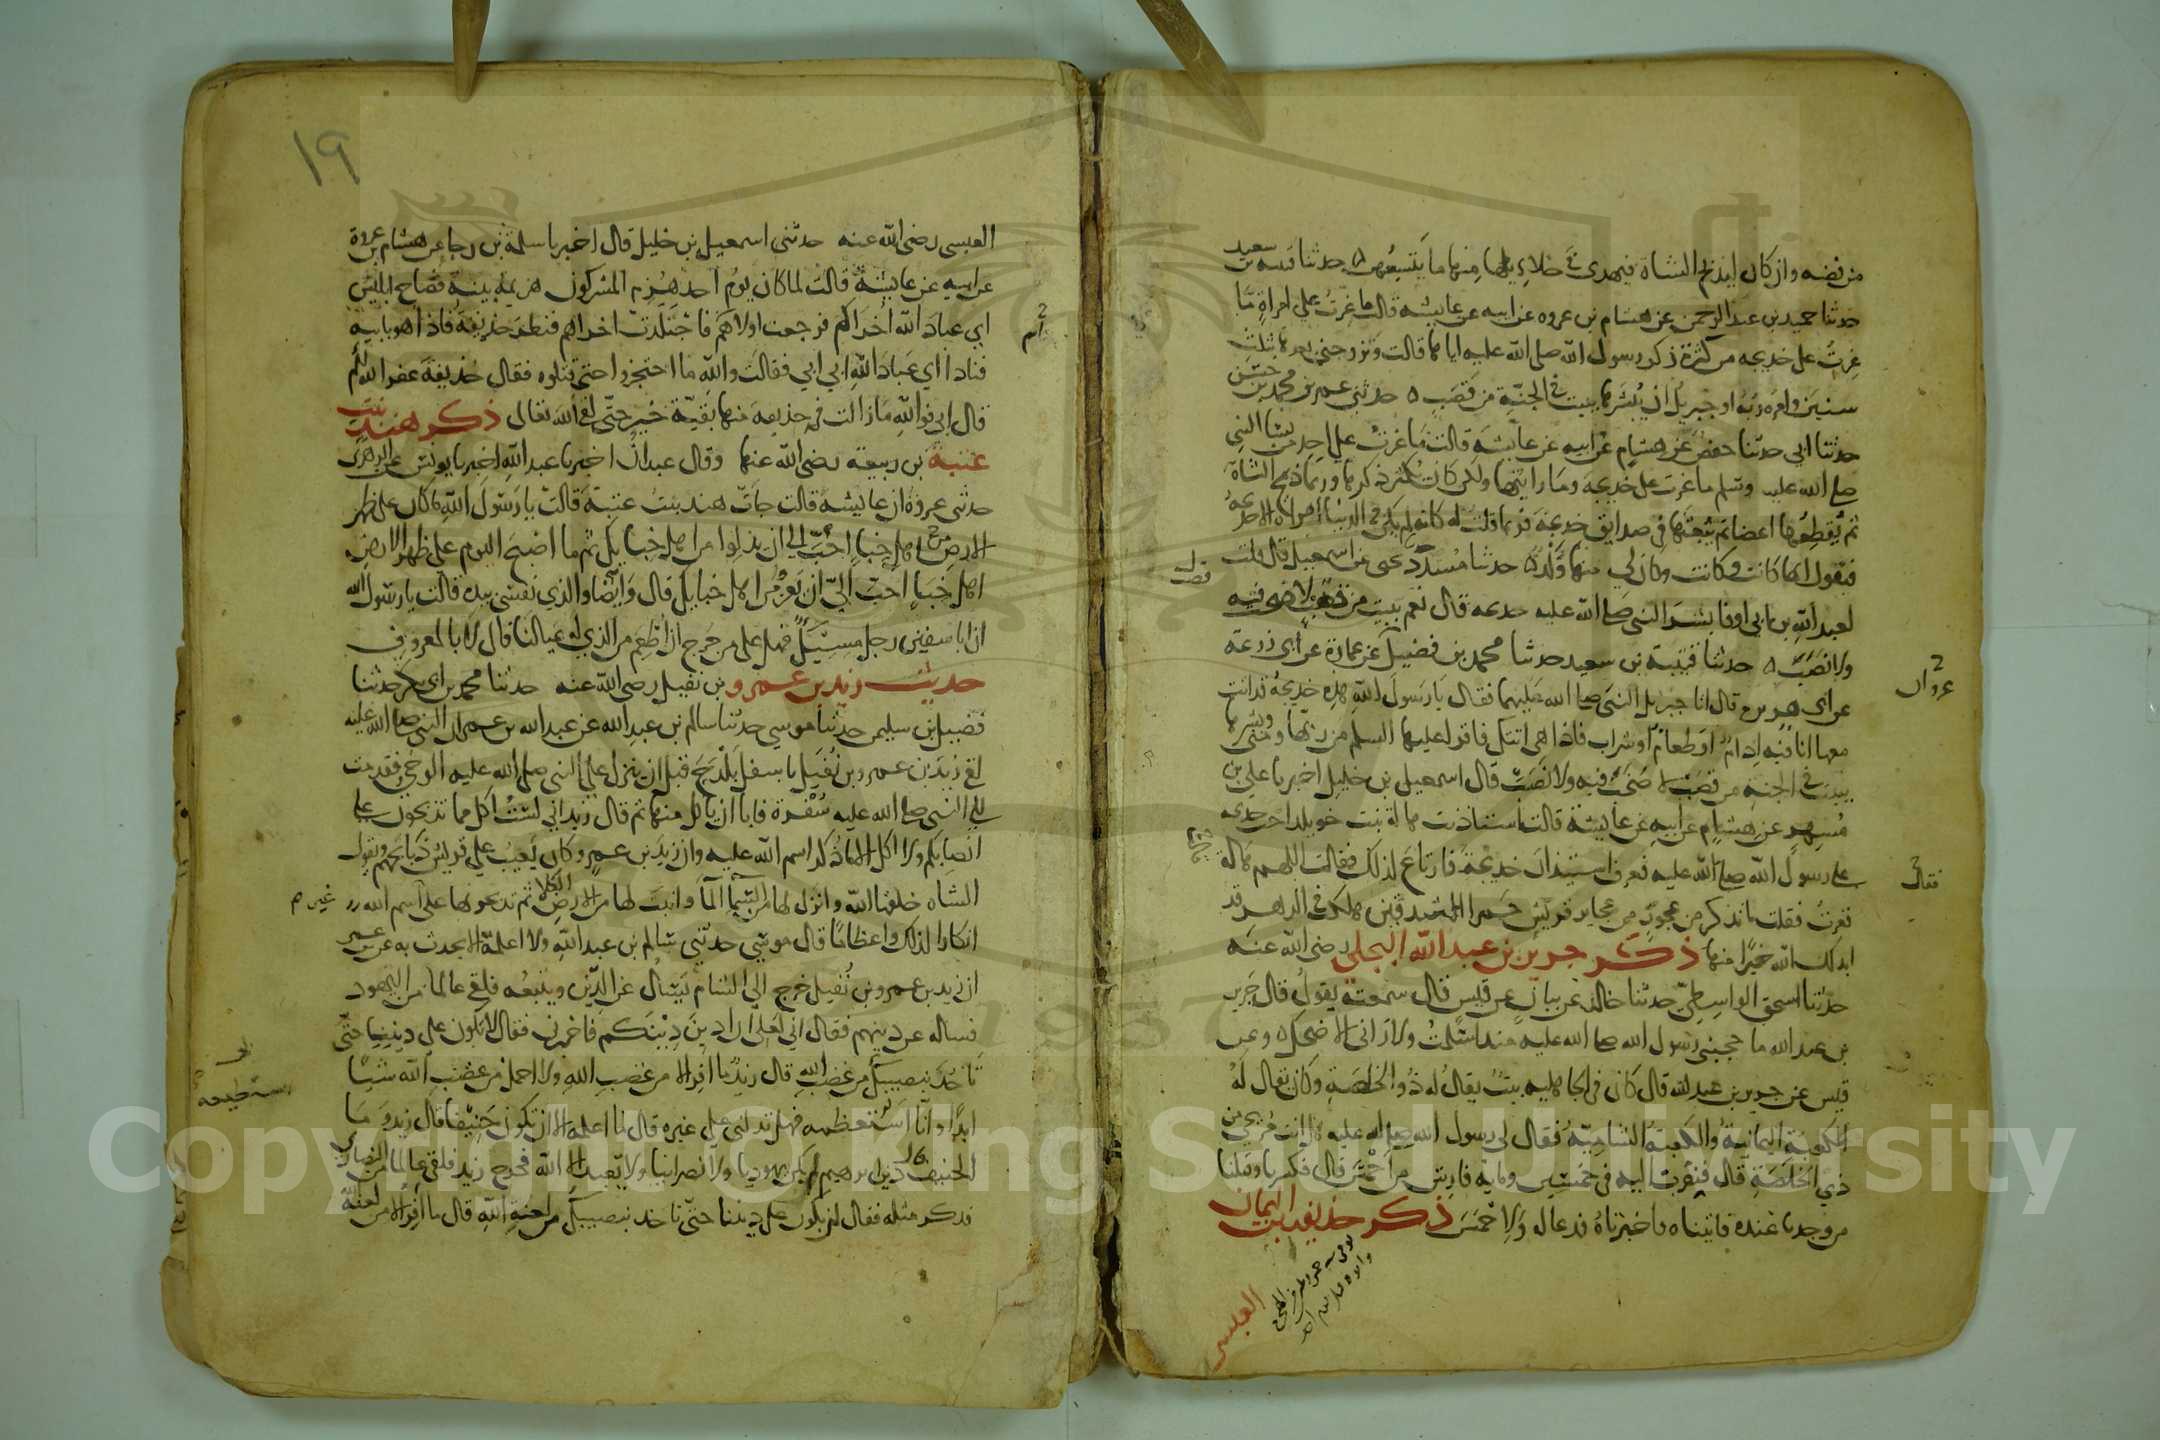 من قصب وان كان ليذبح الشاة فيهدى في خلائلها منها ما يتسعهن حدثنا قتيبه بن سعيد
حدثنا حميد بن عبد الرحمن عن هشام بن عروه عن ابيه عن عايشه قالت ما غرت على امراة ما
غرت على خديجه من كثرة ذكر رسول الله صلى الله عليه اياها قالت وتزوجني بعدها بثلث
سنين وامره ربه او جبريل ان يبشرها ببيت في الجنة من قصب حدثني عمر بن محمد بن حسن
حدثنا ابي حدثنا حفص عن هشام عن ابيه عن عايشة قالت ما غرت على احد من نسا النبي
صلى الله عليه وسلم ما غرت على خديجه وما رايتها ولكن كان يكثر ذكرها وربما ذبح الشاة
ثم يقطعها اعضا ثم يبعثها في صدايق خديجة فربما قلت له كانه لم يكن في الدنيا امراة الا خديجة
فيقول انها كانت وكانت وكان لي منها ولد حدثنا مسدد حدثنا يحيى عن اسمعيل قال قلت
لعبد الله بن ابي اوفا بشر النبي صلى الله عليه خديجه قال نعم ببيت من قصب لا صخب فيه
ولا نصب حدثنا قتيبة بن سعيد حدثنا محمد بن فضيل عن عمارة عن ابي زرعة
عن ابي هريرة قال اتا جبريل النبي صلى الله عليه فقال يا رسول الله هذه خديجة قد اتت
معها انا فيه ادام او طعام او شراب فاذا هي اتتك فاقرا عليها السلم من ربها ومني وبشرها
ببيت في الجنه من قصب لا صخب فيه ولا نصب قال اسمعيل بن خليل اخبرنا علي بن
مسهر عن هشام عن ابيه عن عايشة قالت استاذنت هالة بنت خويلد اخت خديجه
على رسول الله صلى الله عليه فعرف استيذان خديجة فارتاع لذلك فقالت اللهم هالة
فغرت فقلت ما تذكر من عجوز من عجايز قريش حمرا الشدقين هلكت في الدهر قد
ابدلك الله خيرا منها ذكر جرير بن عبد الله البجلي رضي الله عنه
حدثنا اسحق الواسطي حدثنا خالد عن بيان عن قيس قال سمعته يقول قال جرير
بن عبد الله ما حجبني رسول الله صلى الله عليه منذ اسلمت ولا راني الا ضحك وعن
قيس عن جرير بن عبد الله قال كان في الجاهليه بيت يقال له ذو الخلصة وكان يقال له
الكعبة اليمانية والكعبة الشامية فقال لي رسول الله صلى الله عليه هل انت مريحي من
ذي الخلصة قال فنفرت اليه في خمسين وماية فارس من احمس قال فكسرنا وقتلنا
من وجدنا عنده فاتيناه فاخبرناه فدعا له ولاحمس ذكر حذيفة بن اليمان
العبسي
فقال
١٩
العبسى رضى الله عنه حدثنى اسمعيل بن خليل قال اخبرنا سلمة بن رجا عن هشام بن عروة
عن ابيه عن عايشة قالت لما كان يوم احد هزم المشركون هزيمة بينة فصاح ابليس
اي عباد الله اخراكم فرجعت اولاهم فاجتلدت اخراهم فنظر حذيفة فاذا هو بابيه
فنادا اي عباد الله ابي ابي فقالت والله ما احتجزوا حتى قتلوه فقال حذيفة غفر الله لكم
قال ابي فوالله ما زالت في حذيفة منها بقية خير حتى لقي الله تعالى ذكر هند بنت
عتبة بن ربيعة رضى الله عنها وقال عبدان اخبرنا عبد الله اخبرنا يونس عن الزهرى
حدثنى عروة ان عايشه قالت جات هند بنت عتبة قالت يا رسول الله ما كان على ظهر
الارض من اهل خبا احب الي ان يذلوا من اهل خبايك ثم ما اصبح اليوم على ظهر الارض
اهل خبا احب الي ان يعزوا من اهل خبايك قال وايضا والذي نفسي بيده قالت يا رسول الله
ان ابا سفين رجل مسيك فهل علي من حرج ان اطعم من الذي له عيالنا قال لا الا بالمعروف
حديث زيد بن عمرو بن نفيل رضى الله عنه حدثنا محمد بن ابي بكر حدثنا
فضيل بن سليمن حدثنا موسى حدثنا سالم بن عبد الله عن عبد الله بن عمر ان النبي صلى الله عليه
لقي زيد بن عمرو بن نفيل باسفل بلدح قبل ان ينزل على النبي صلى الله عليه الوحي فقدمت
الى النبي صلى الله عليه سفرة فابا ان ياكل منها ثم قال زيد اني لست اكل مما تذبحون على
انصابكم ولا اكل الا ما ذكر اسم الله عليه وان زيد بن عمرو كان يعيب على قريش ذبايحهم ويقول
الشاه خلقها الله وانزل لها من السما الما وانبت لها من الارض الكلا ثم تذبحونها على اسم الله
غير م
انكارا لذلك واعظاما قال موسى حدثني سالم بن عبد الله ولا اعلمه الا يحدث به عن بن عمر
ان زيد بن عمرو بن نفيل خرج الى الشام يسال عن الدين ويتبعه فلقي عالما من اليهود
فساله عن دينهم فقال اني لعلي ان ادين دينكم فاخبرني فقال لا تكون على ديننا حتى
تاخذ بنصيبك من غضب الله قال زيد ما افر الا من غضب الله ولا احمل من غضب الله شيا
ابدا وانا استطيعه فهل تدلني على غيره قال ما اعلمه الا ان تكون حنيفا قال زيد وما
الحنيف قال دين ابرهيم لم يكن يهوديا ولا نصرانيا ولا يعبد الا الله فخرج زيد فلقي عالما من النصارى
فذكر مثله فقال لن تكون على ديننا حتى تاخذ بنصيبك من لعنة الله قال ما افر الا من لعنة الله
Copyright © King Saud University
1957